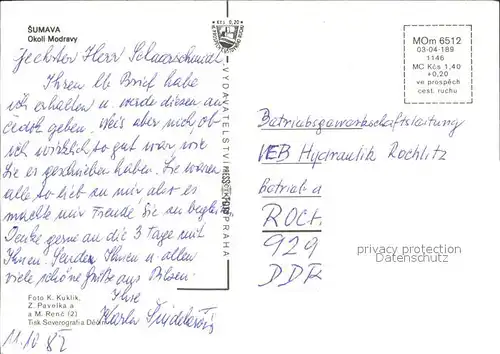 ŠUMAVA
Okolí Modravy
Geehrter Herr Scharschmidt
Ihren lb Brief habe
ich erhalten u. werde diesen an
Čedok geben. Weis aber nich, ob
ich wirklich so gut war, wie
Sie es geschrieben haben. Sie waren
alle so lieb zu mir aber es
machte mir Freude Sie zu begleit
Denke gerne an die 3 Tage mit
Ihnen. Senden Ihnen u. allen
viele schöne Grüße aus Pilsen.
Ihre
Karla
Foto K. Kuklík,
Z. Pavelka a
a M. Renč (2)
Tisk Severografia Děčín
11. 10 82
Kčs 0,20
VYDAVATELSTVÍ PRESSFOTO PRAHA
MOm 6512
03-04-189
1146
MC Kčs 1,40
+0,20
ve prospěch
cest. ruchu
Betriebsgewerkschaftsleitung
VEB Hydraulik Rochlitz
Betrieb
ROCH
929
DDR
privacy protection
Datenschutz